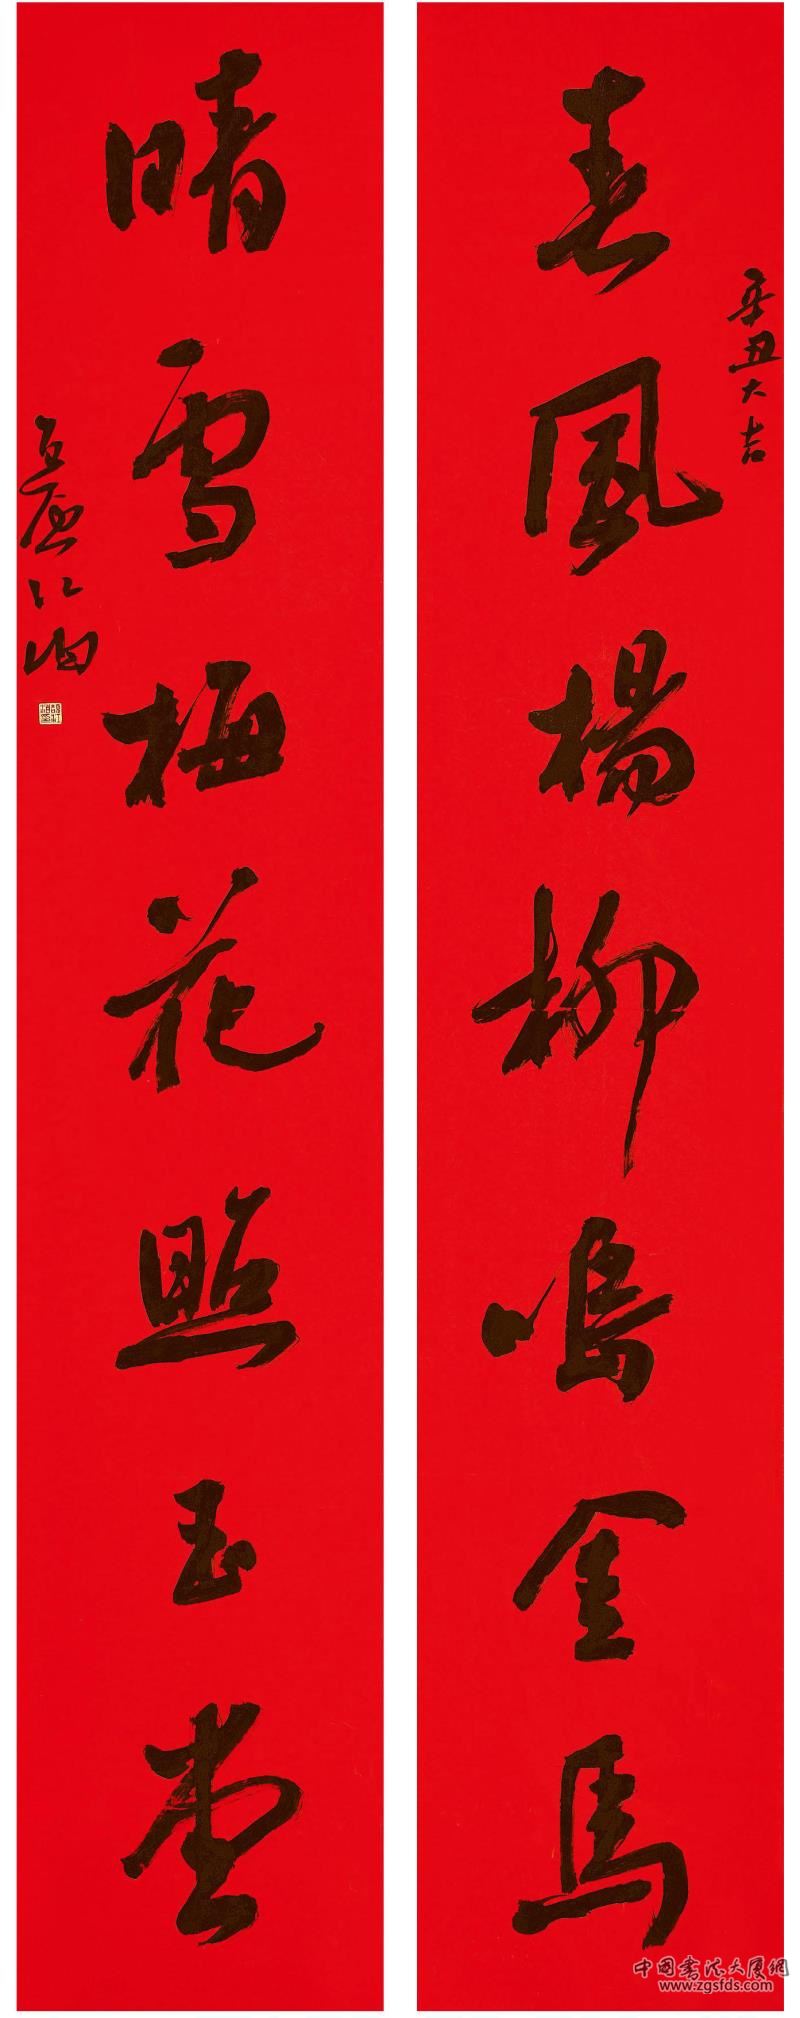 辛丑大吉
春風楊柳鳴金馬
晴雪梅花照玉堂
中国书法大厦網
www.zgsfds.com